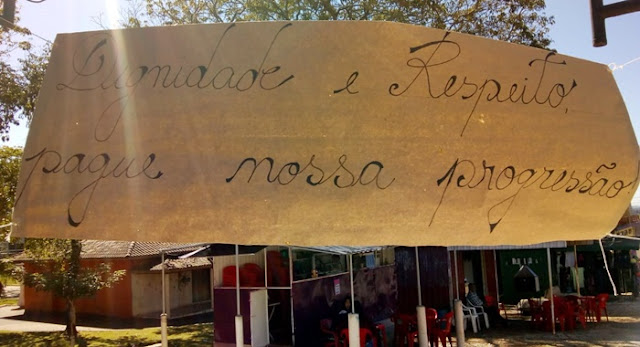 Dignidade e Respeito,
pague nossa progressão